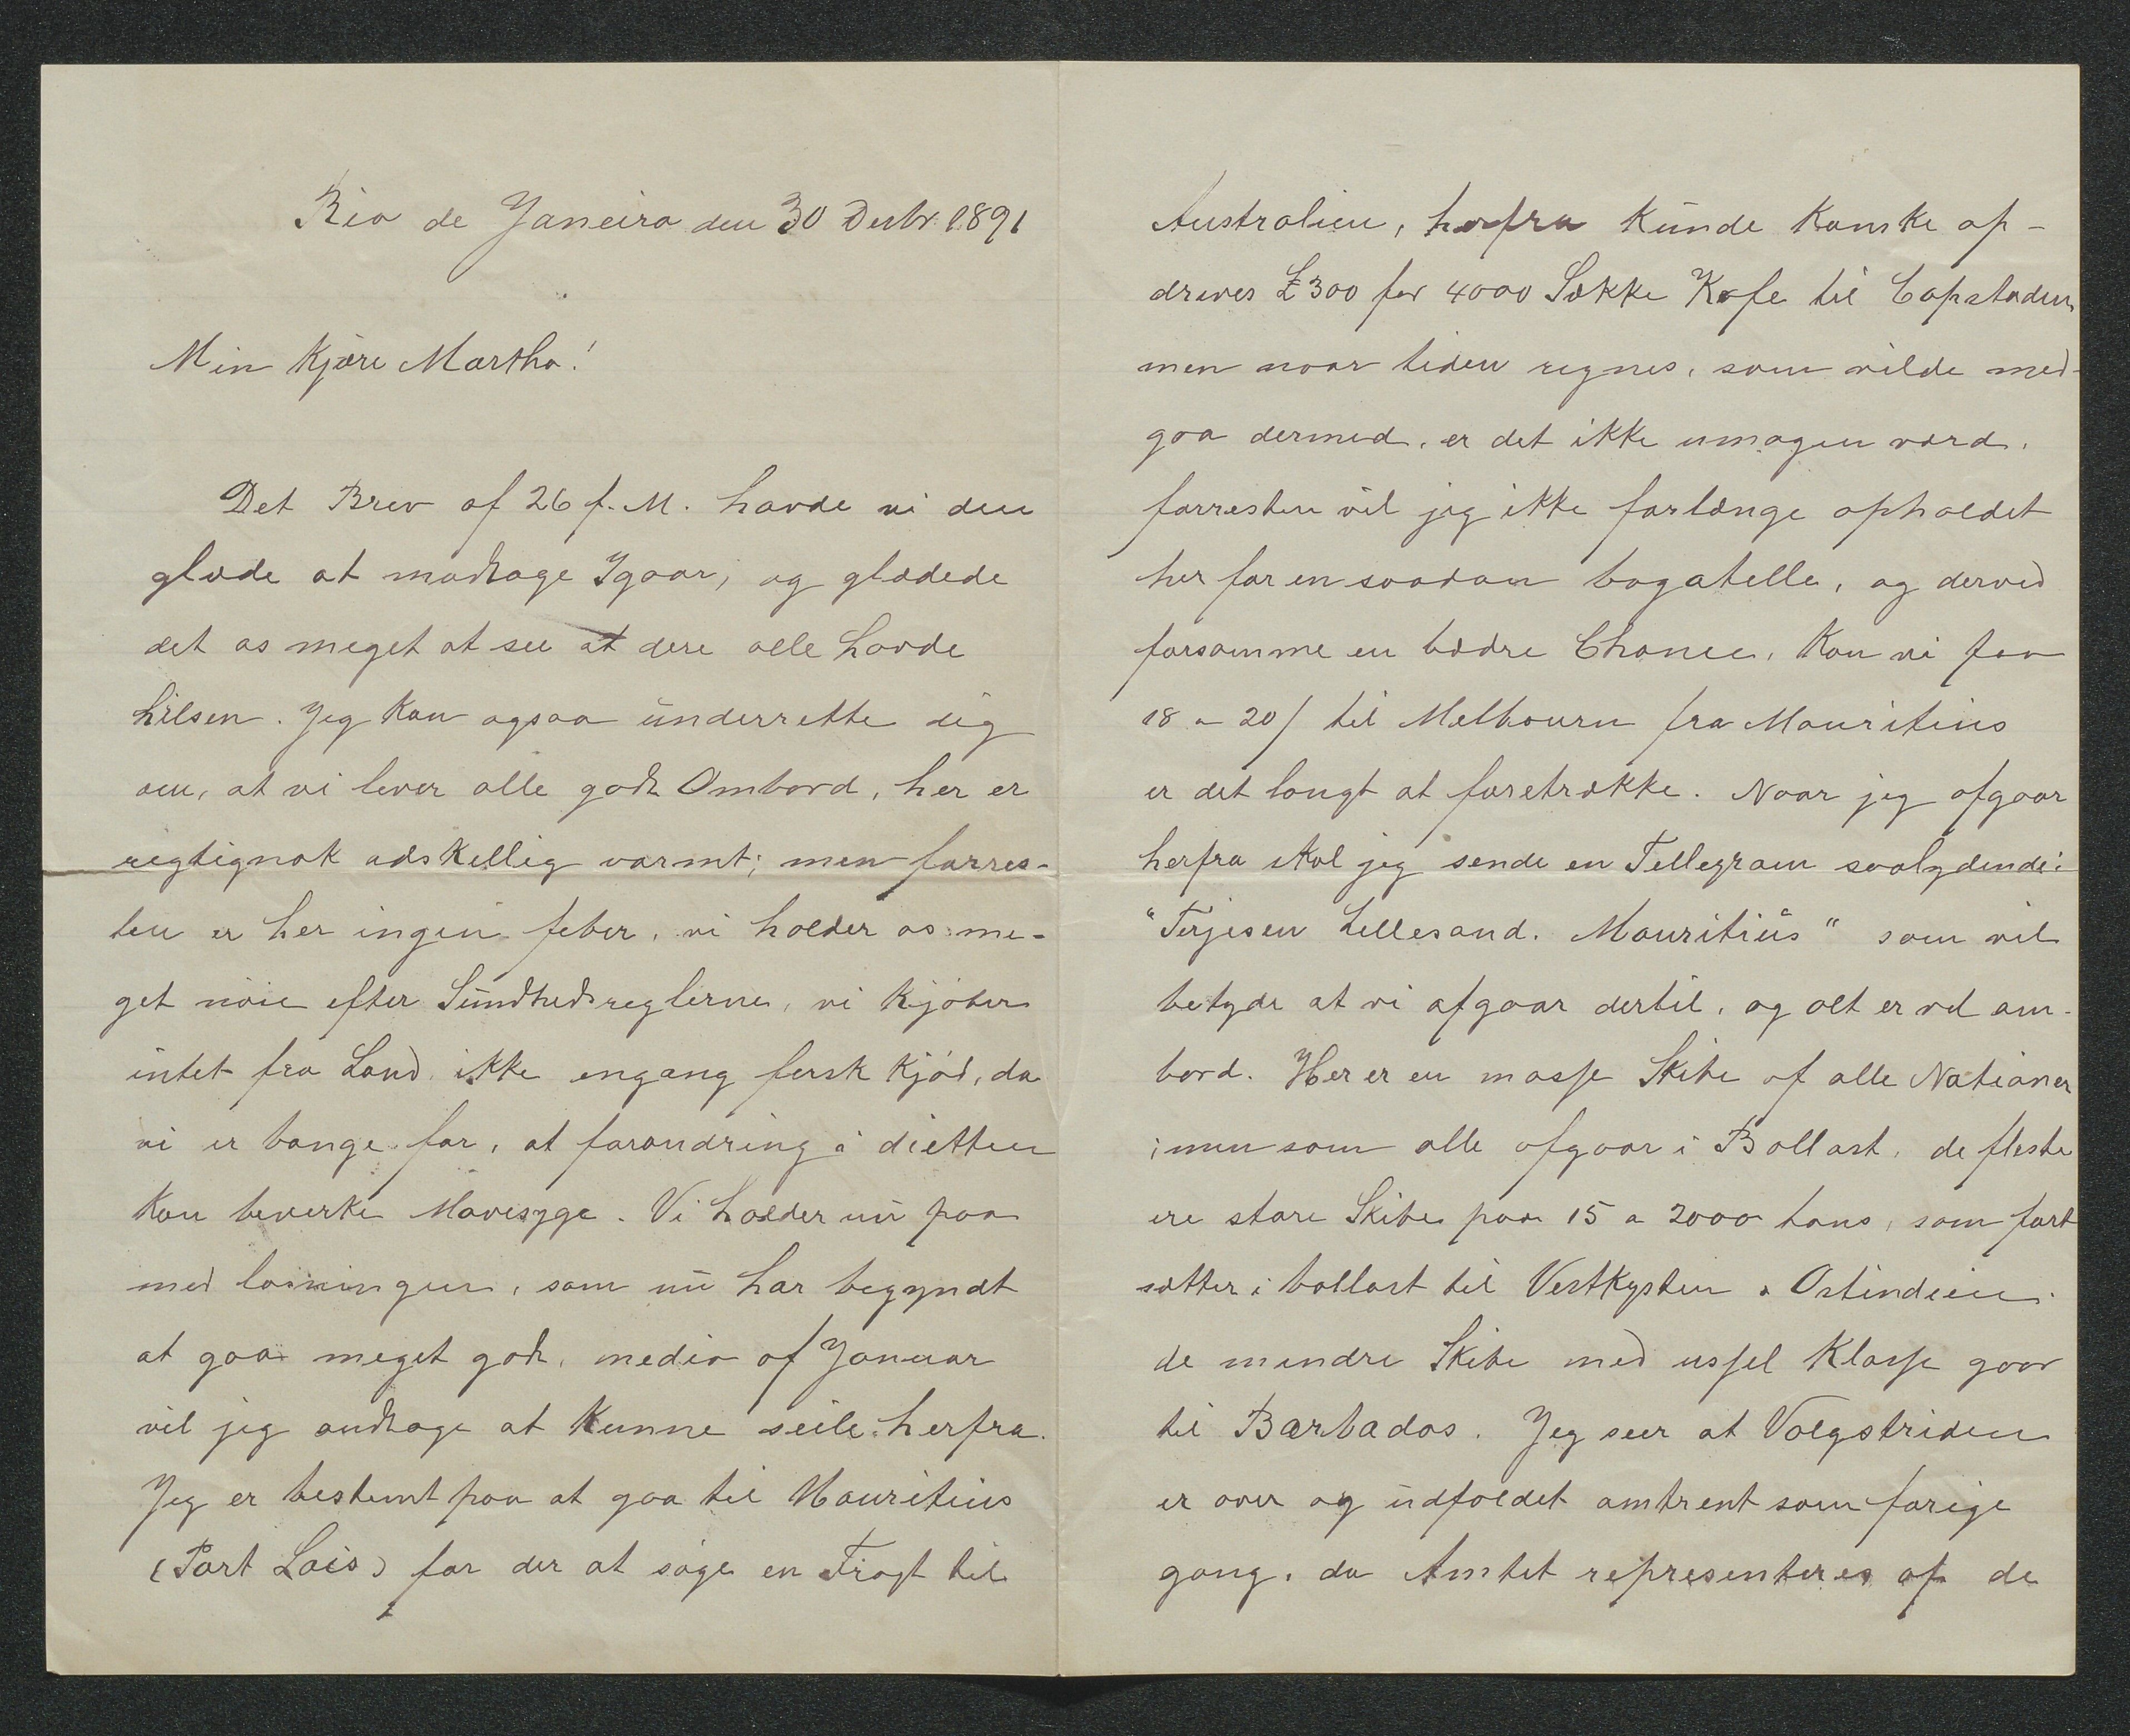 Rio de Janeiro den 30 Decbr. 1891
Min Kjære Martha!
Det Brev af 26 f. M. havde vi den
glæde at modtage Igaar, og glædede
det os meget at see at dere alle havde
hilsen. Jeg Kan ogsaa underrette dig
om, at vi lever alle godt Ombord, her er
rigtignok adskellig varmt; men forres-
ten er her ingen feber, vi holder os me-
get nöie efter Sundhedsreglerne, vi Kjöber
intet fra Land, ikke engang fersk Kjöd, da
vi er bange for, at forandring i dietten
Kan beverke Mavesyge. Vi holder nu paa
med losningen, som nu har begyndt
at gaa meget godt, medio af Januar
vil jeg andtage at Kunne seile herfra.
Jeg er bestemt paa at gaa til Mauritius
(Port Lois) for der at söge en Fragt til
Australien, herfra Kunde Kanske op-
drives £300 for 4000 Sække Kafe til Capstaden,
men naar tiden regnes, som vilde med-
gaa dermed, er det ikke umagen værd,
forresten vil jeg ikke forlænge opholdet
her for en saadan bagatelle, og derved
forsømme en bædre Chance, Kan vi faa
18 a 20/ til Melbourn fra Mauritius
er det langt at foretrække. Naar jeg afgaar
herfra skal jeg sende en Tellegram saalydende:
"Terjesen Lillesand. Mauritius" som vil
betyde at vi afgaar dertil, og alt er vel om-
bord. Her er en masse Skibe af alle Nationer
; men som alle afgaar i Ballast, de fleste
ere store Skibe paa 15 a 2000 tons, som fort
sætter i ballast til Vestkysten a Ostindien.
de mindre Skibe med ussel Klasse gaar
til Barbados. Jeg seer at Valgstriden
er over og udfaldet omtrent som forige
gang, da Amtet representeres af de